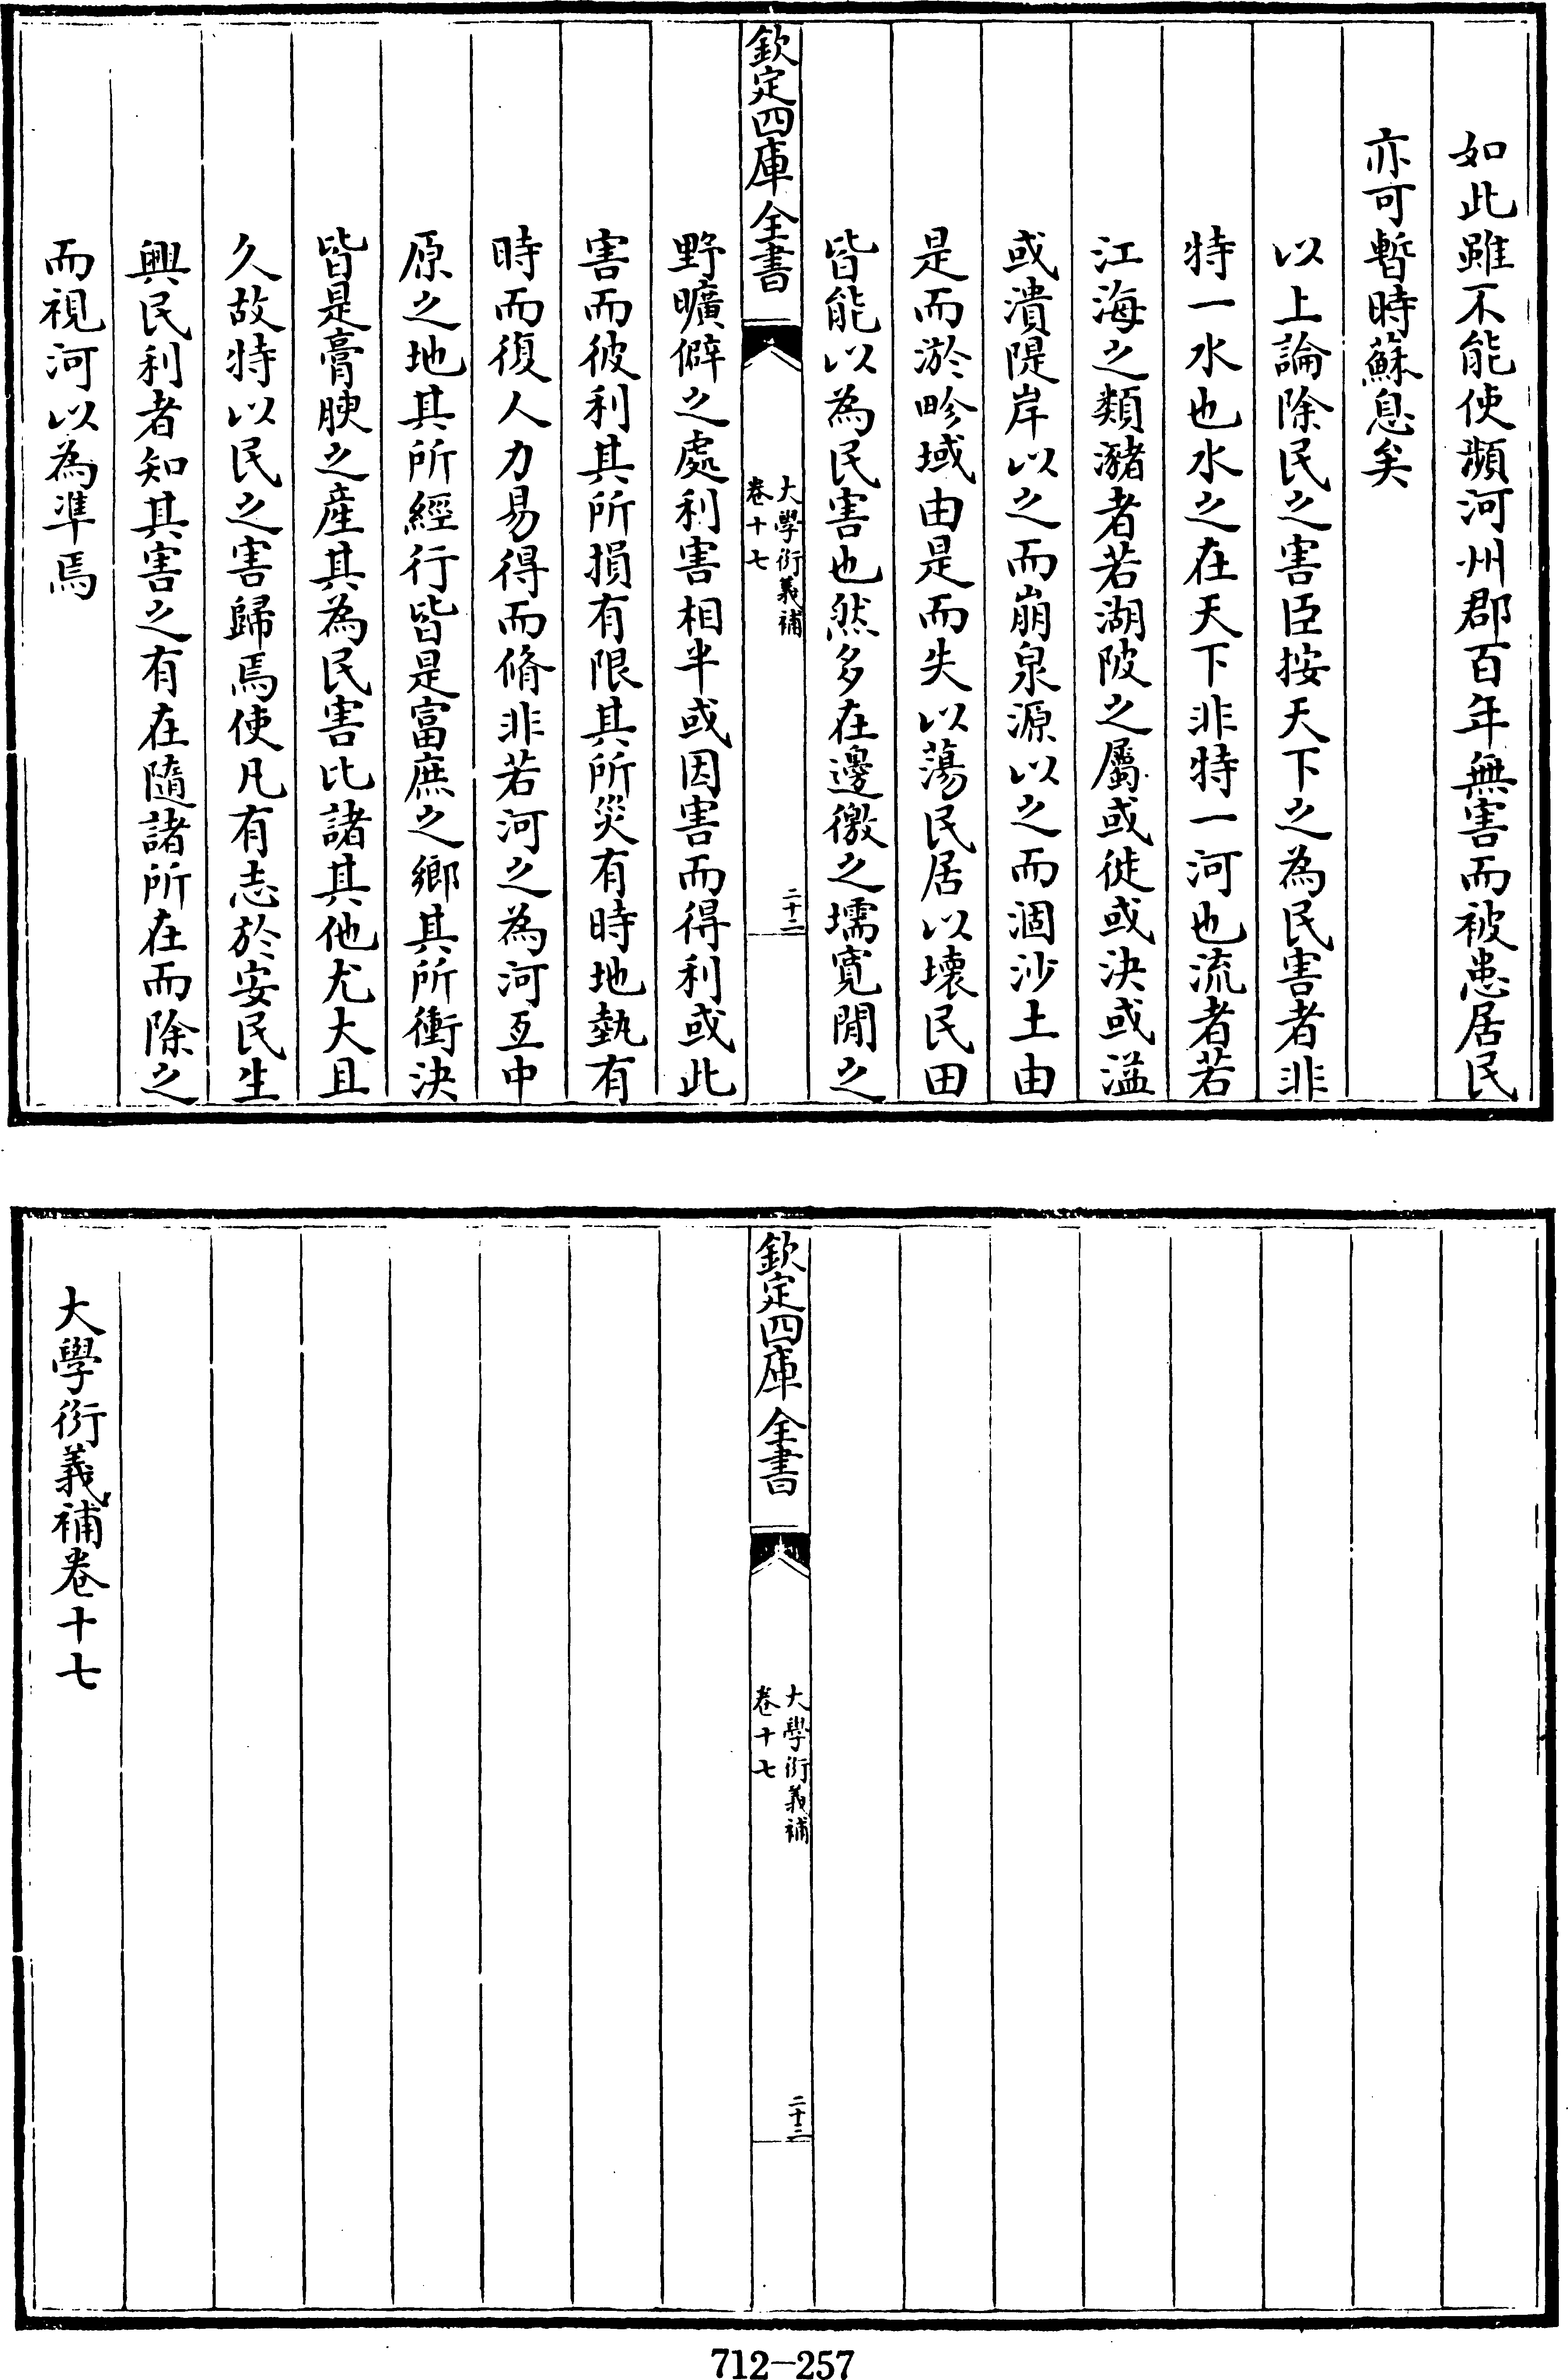 如此雖不能使瀕河州郡百年無害而被患居民
亦可暫時蘇息矣
以上論除民之害臣按天下之為民害者非
特一水也水之在天下非特一河也流者若
江海之類瀦者若湖陂之屬或徙或決或溢
或潰隄岸以之而崩泉源以之而涸沙土由
是而淤畛域由是而失以蕩民居以壞民田
皆能以為民害也然多在邊徼之壖寛閒之
欽定四庫全書
大學衍義補
卷十七
二十二
野曠僻之處利害相半或因害而得利或此
害而彼利其所損有限其所災有時地勢有
時而復人力易得而脩非若河之為河亙中
原之地其所經行皆是富庶之鄉其所衝決
皆是膏腴之產其為民害比諸其他尤大且
久故特以民之害歸焉使凡有志於安民生
興民利者知其害之有在隨諸所在而除之
而視河以為凖焉
欽定四庫全書
大學衍義補
卷十七
二十三
大學衍義補卷十七
712-257